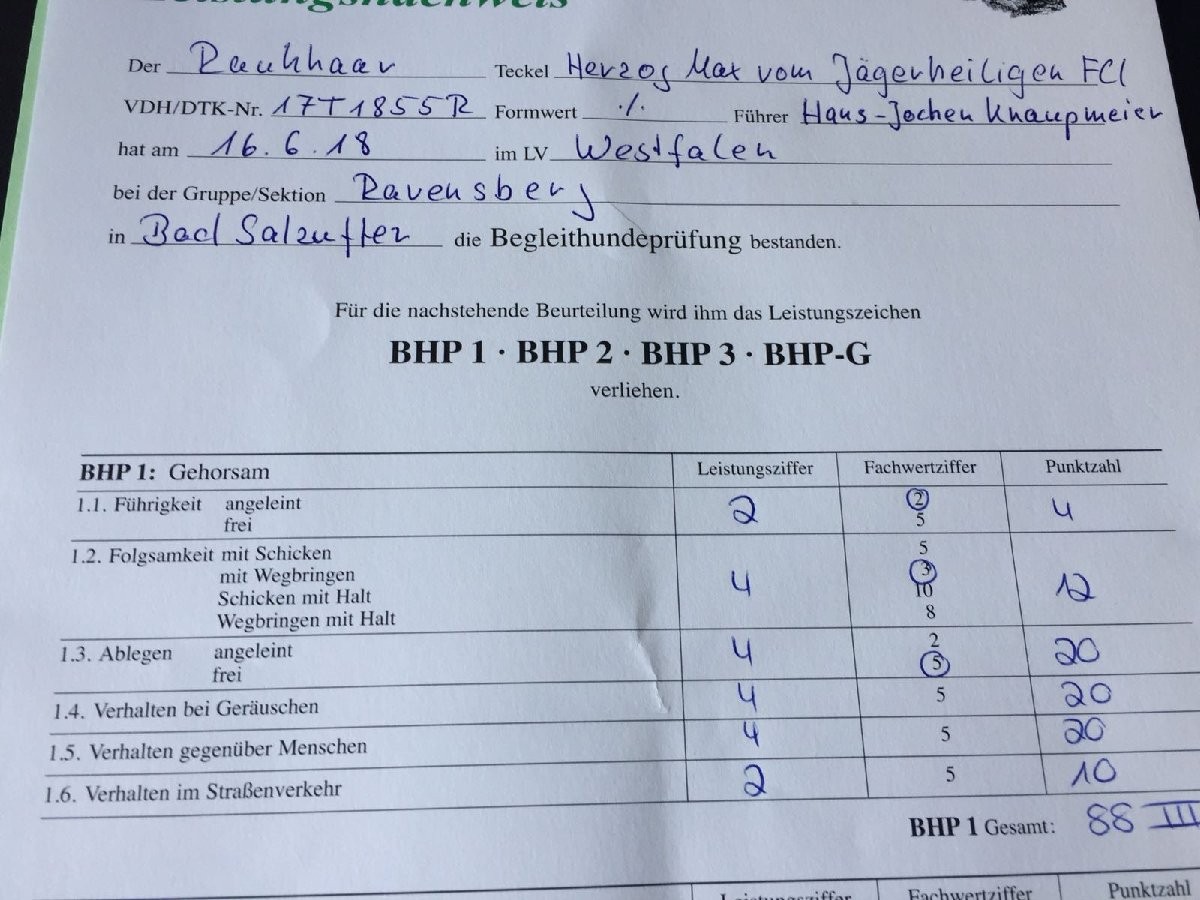 Leistungsnachweis
Der Rauhhaar Teckel Herzog Max vom Jägerheiligen FCI
VDH/DTK-Nr. 17T1855R Formwert ./. Führer Hans-Jochen Knaupmeier
hat am 16.6.18 im LV Westfalen
bei der Gruppe/Sektion Ravensberg
in Bad Salzuflen die Begleithundeprüfung bestanden.
Für die nachstehende Beurteilung wird ihm das Leistungszeichen
BHP 1 · BHP 2 · BHP 3 · BHP-G
verliehen.
BHP 1: Gehorsam Leistungsziffer Fachwertziffer Punktzahl
1.1. Führigkeit angeleint 2 2 4
frei 5
1.2. Folgsamkeit mit Schicken 5
mit Wegbringen 4 3 12
Schicken mit Halt 10
Wegbringen mit Halt 8
1.3. Ablegen angeleint 4 2 20
frei 5
1.4. Verhalten bei Geräuschen 4 5 20
1.5. Verhalten gegenüber Menschen 4 5 20
1.6. Verhalten im Straßenverkehr 2 5 10
BHP 1 Gesamt: 88 III
Leistungsziffer Fachwertziffer Punktzahl